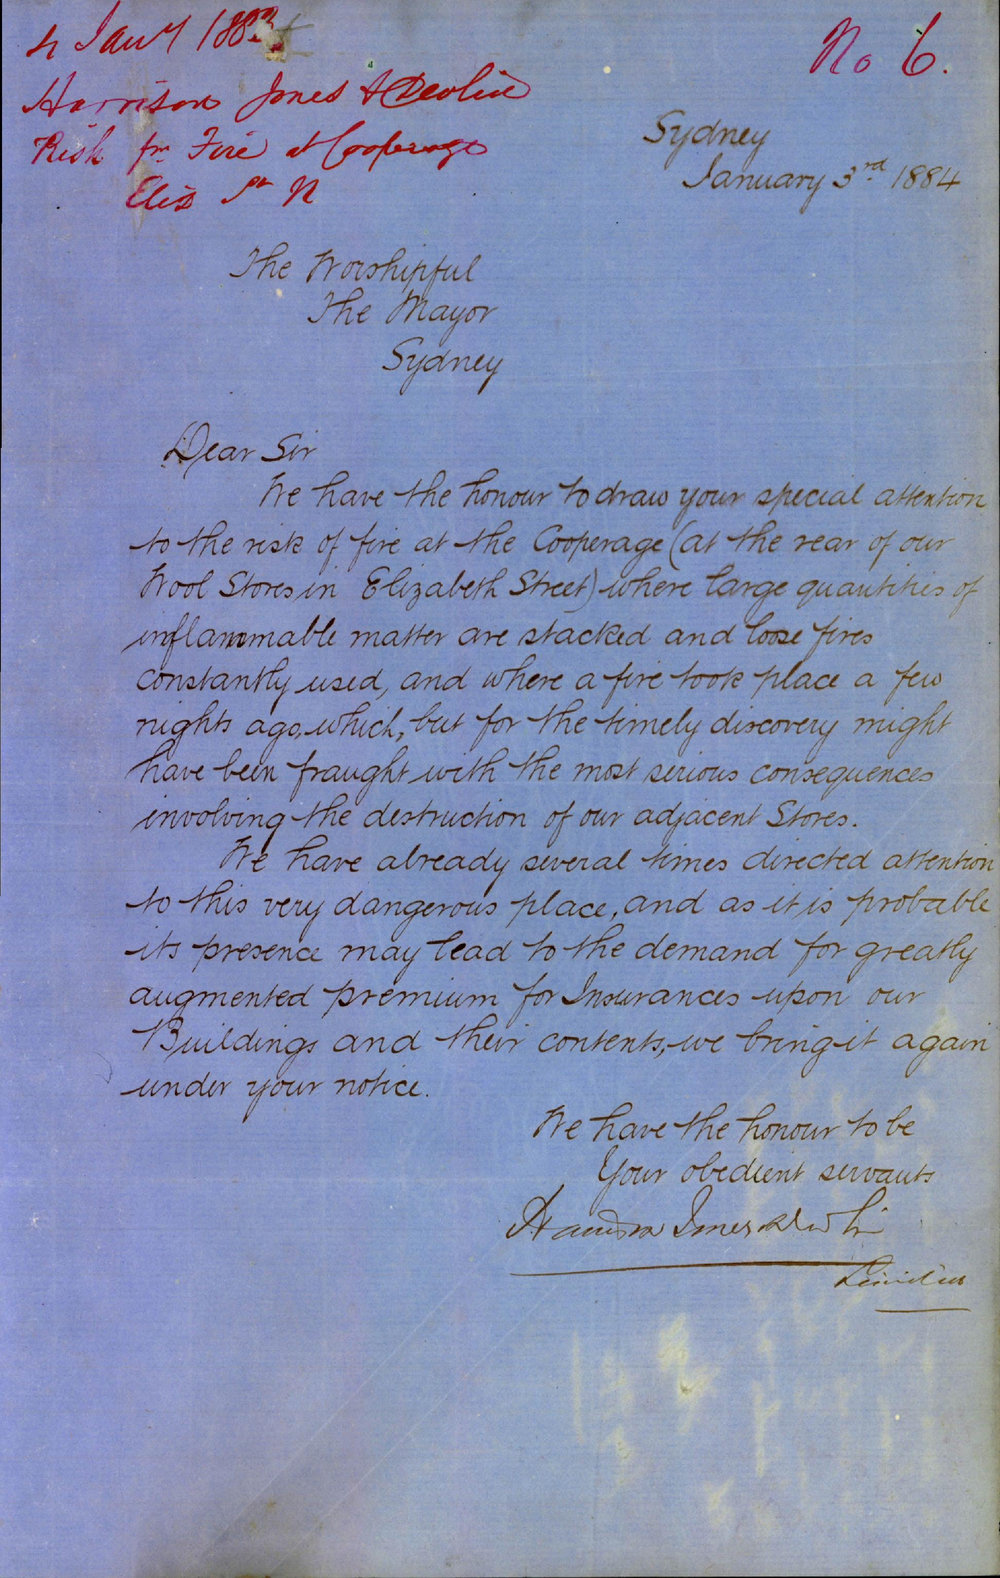 4 Jany 1883
Harrison Jones & Devlin
Risk fm Fire at Cooperage
Eliz St N
No 6.
Sydney
January 3rd 1884
The Worshipful
The Mayor
Sydney
Dear Sir
We have the honour to draw your special attention
to the risk of fire at the Cooperage (at the rear of our
Wool Stores in Elizabeth Street) where large quantities of
inflammable matter are stacked and loose fires
constantly used, and where a fire took place a few
nights ago, which, but for the timely discovery might
have been fraught with the most serious consequences
involving the destruction of our adjacent Stores.
We have already several times directed attention
to this very dangerous place, and as it is probable
its presence may lead to the demand for greatly
augmented premium for Insurances upon our
Buildings and their contents, we bring it again
under your notice.
We have the honour to be
Your obedient servants
Harrison Jones & Devlin
Limited